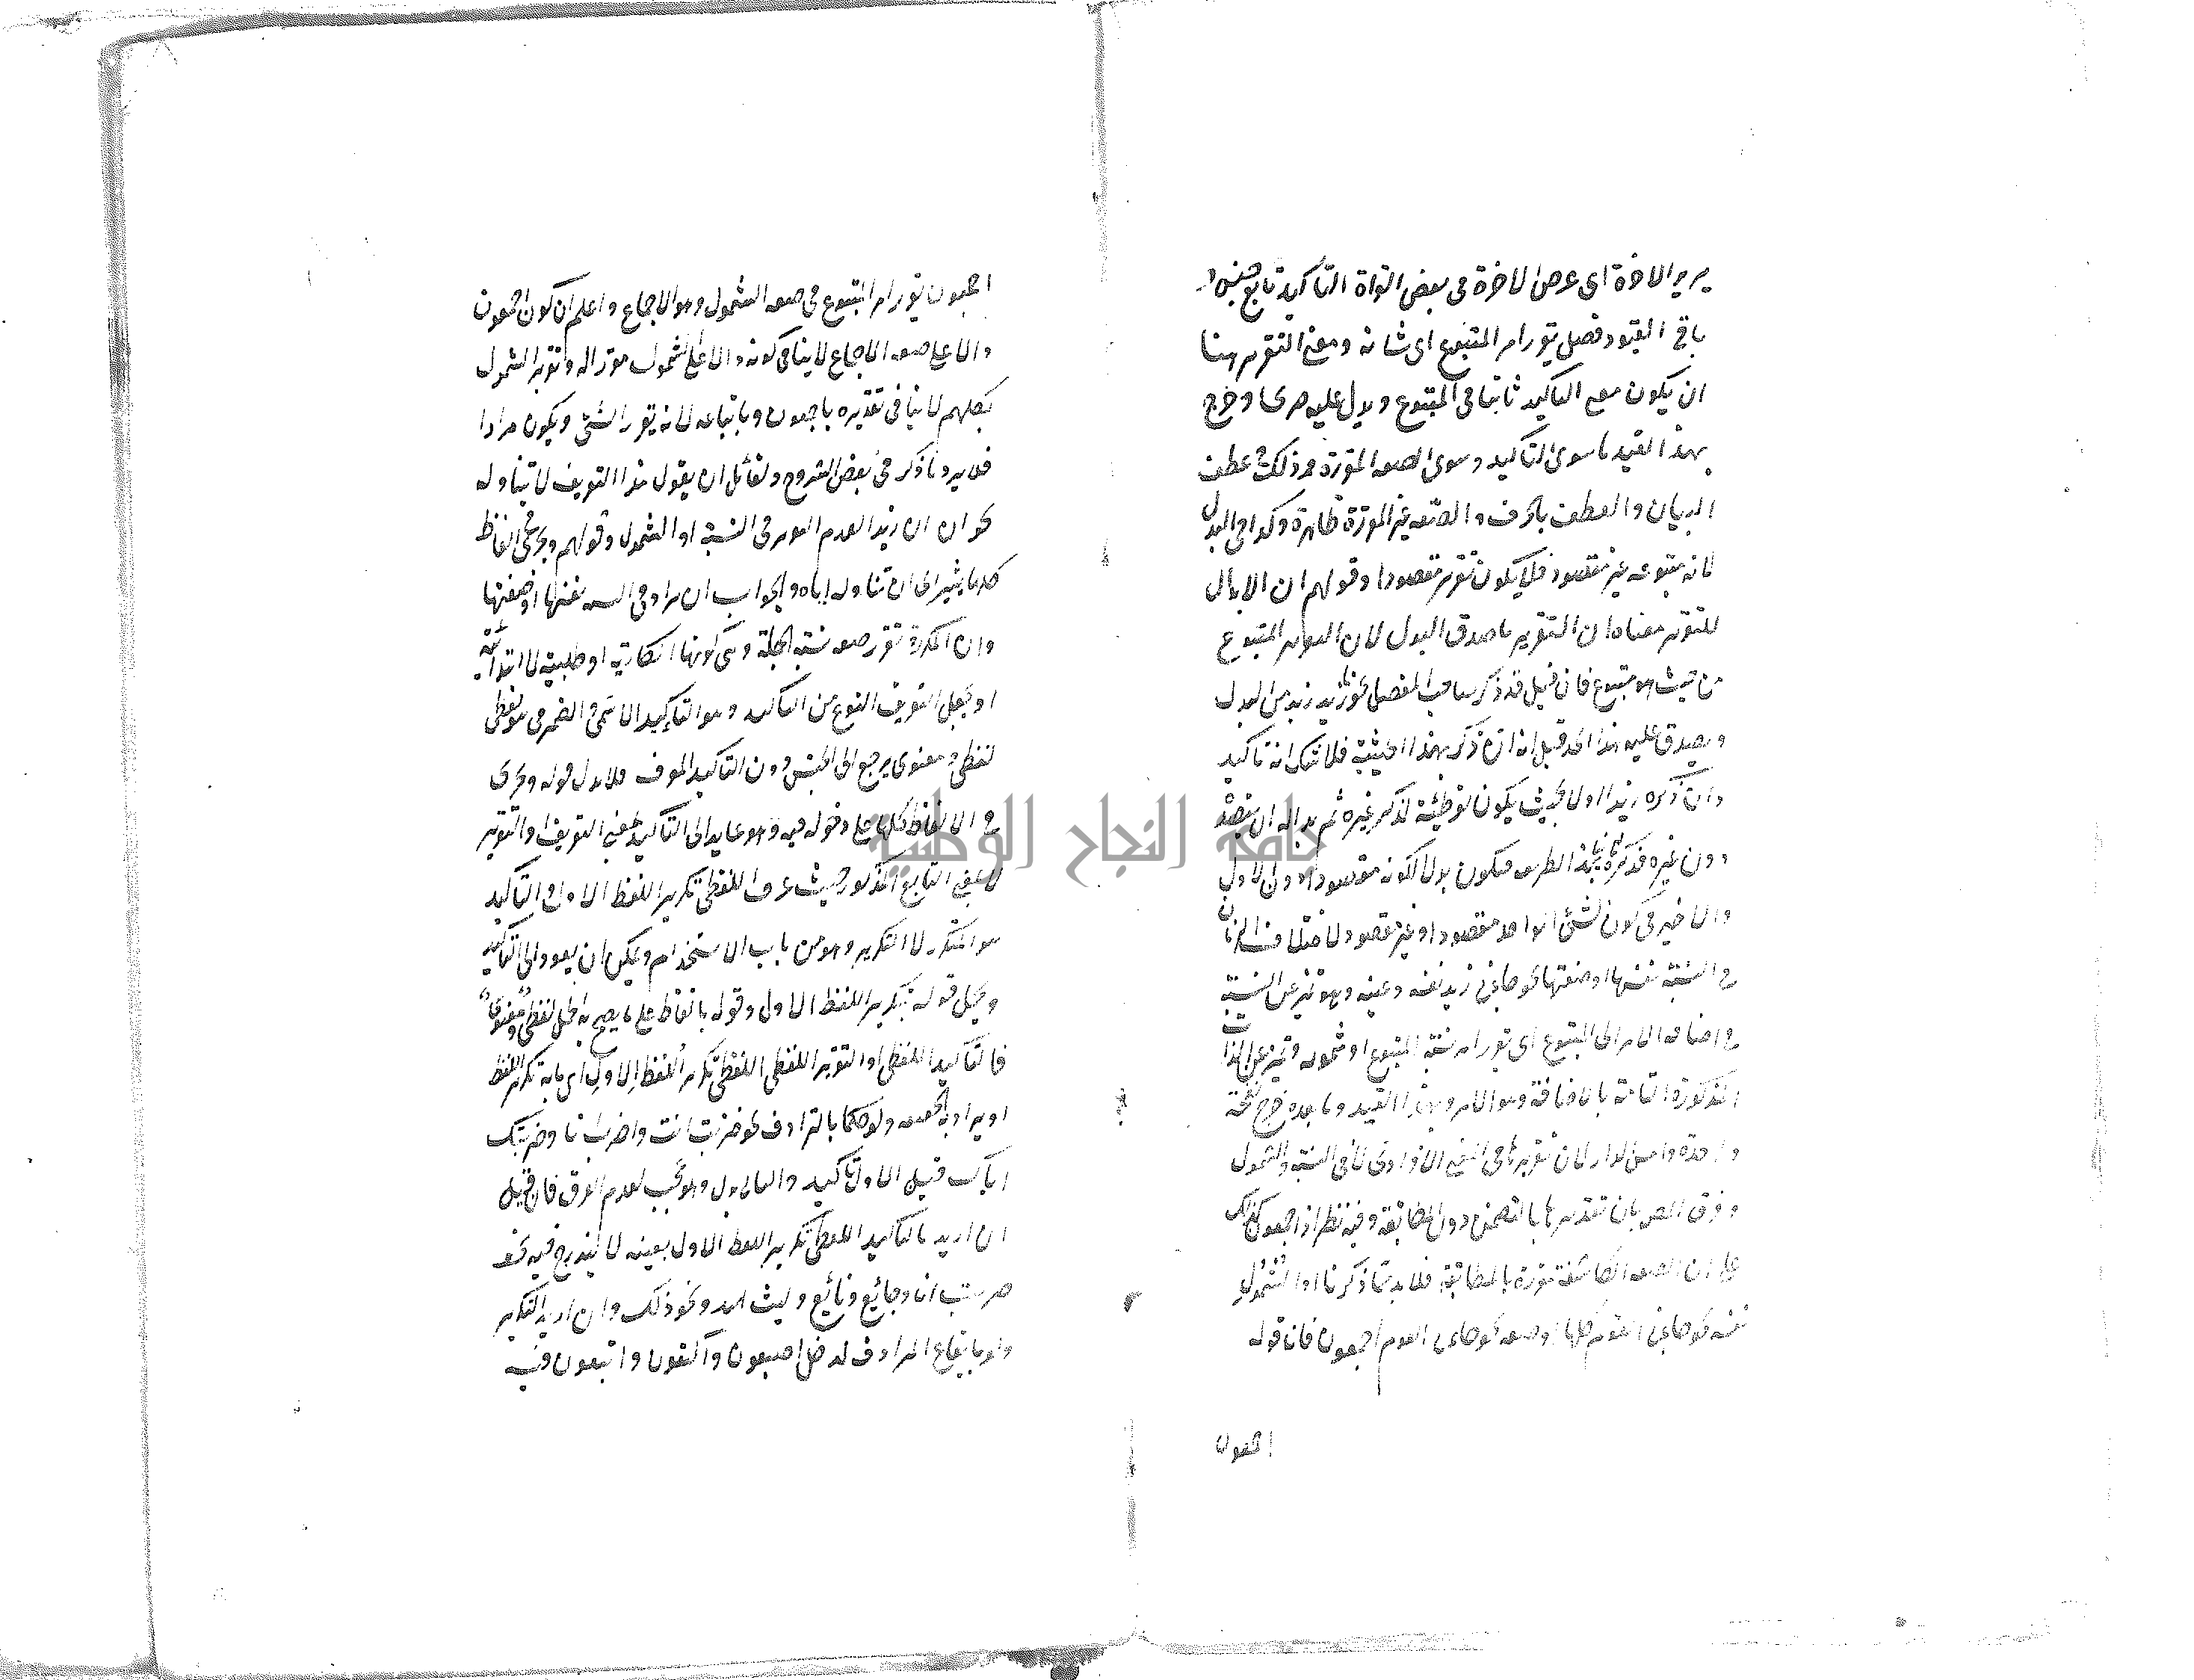 يريد الاخرة اى عرض الاخرة فى بعض القراة التاكيد تابع جنس و
باقى القيود فصل يقرر امر المتبوع اى شانه ومعنى التقرير هنا
ان يكون معنى التاكيد ثابتا فى المتبوع ويدل عليه صريحا وخرج
بهذا القيد ما سوى التاكيد وسوى الصفة المقررة عطف
البيان والعطف بالحرف والصفة غير المقررة ظاهرة وكذا فى البدل
لانه متبوعه غير مقصود فلا يكون تقريره مقصودا وقولهم ان الابدال
للتقرير معناه ان التقرير ما صدق البدل لان المتبوع
من حيث هو متبوع فان قيل قد ذكر صاحب المفصل نحو زيد زيد من البدل
ويصدق عليه هذا الحد قيل انه ان ذكر بهذا الحيثية فلا شك انه تاكيد
وان ذكره زيدا اولا بحيث يكون توطئة لذكر غيره ثم بدا له ان يقصد
دون غيره فذكره بهذا الطريق فيكون بدلا لكونه مقصودا دون الاول
والاخير فى كون الشئ الواحد مقصودا وغير مقصود لاختلاف الزمان
فى النسبة نفسها او صفتها نحو جاءنى زيد نفسه وعينه وهو تميز عن النسبة
فى اضافة الامر الى المتبوع اى يقرر امر نسبة المتبوع او شموله وتميز عن الذات
المذكورة التامة بالاضافة وهو الامر وبهذا القيد وما بعده خرج نفخة
واحدة وامس الدابر لان تقريرها فى المعنى الافرادى لا فى النسبة والشمول
وفرق بان تقديرها بالتضمن دون المطابقة وفيه نظر اذ اجمعون كذلك
على ان الصفة الكاشفة مقررة بالمطابقة فلا بد مما ذكرنا او الشمول
نفسه نحو جاءنى القوم كلهم او صفته نحو جاءنى القوم اجمعون فان قوله
اجمعون
اجمعون يقرر امر المتبوع فى صفة الشمول وهو الاجماع واعلم ان كون اجمعون
دالا على صفة الاجماع لا ينافى كونه دالا على الشمول مقررا له وتقرير الشمول
بكلهم لا ينافى تقديره باجمعون وباتباعه لانه يقرر الشئ ويكون مرادا
فلا يرد ما ذكر فى بعض الشروح ولقائل ان يقول هذا التعريف لا يتناول
نحو ان ان زيدا لعدم التقرير فى النسبة او الشمول وقولهم ويجرى فى الفاظ
كلها يشير الى ان تناوله اياه والجواب ان يراد فى النسبة نفسها او صفتها
وان المكررة تقرر صفة نسبة الجملة وهى كونها انكارية او طلبية لا ابتدائية
او يجعل التعريف لنوع من التاكيد وهو التاكيد الاسمى والضمير فى هو لفظى
لفظى ومعنوى يرجع الى الجنس دون التاكيد المعرف فلا يدل قوله ويجرى
فى الالفاظ كلها على دخوله فيه وهو عايد الى التاكيد بمعنى التعريف والتقرير
لا بمعنى التابع المذكور حيث عرف اللفظى بتكرير اللفظ الاول والتاكيد
هو المتكرر لا التكرير وهو من باب الاستخدام ويمكن ان يعود الى التاكيد
ويحمل قوله تكرير اللفظ الاول وقوله بالفاظ على ما يصح به الحمل لفظى ومعنوى
فالتاكيد اللفظى او التقرير اللفظى تكرير اللفظ الاول اى ما به تكرير اللفظ
او يراد به الحقيقة ولو حكما بالترادف نحو ضربت انت واضرب انا وضربتك
اياك قيل الاول تاكيد والثانى بدل وهو عجب لعدم الفرق فان قيل
ان اريد بالتاكيد اللفظى تكرير اللفظ الاول بعينه لا يندرج فيه نحو
ضربت انا وجائع ونائع وليث اسد ونحو ذلك وان اريد التكرير
ولو بايقاع المرادف لدخل ابصعون واكتعون وابتعون فيه